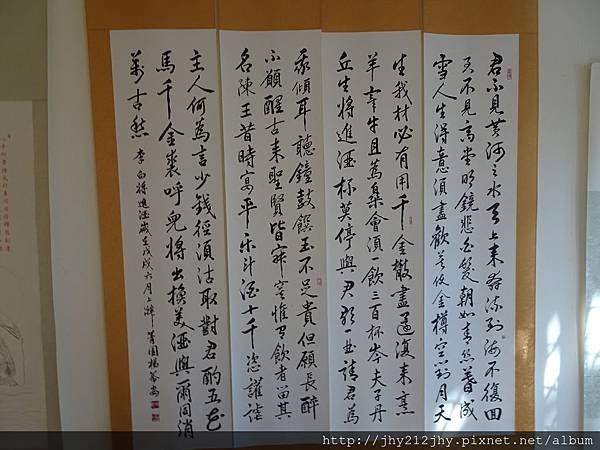 君不見黃河之水天上來奔流到海不復回
君不見高堂明鏡悲白髮朝如青絲暮成
雪人生得意須盡歡莫使金樽空對月天
生我材必有用千金散盡還復來烹
羊宰牛且為樂會須一飲三百杯岑夫子丹
丘生將進酒杯莫停與君歌一曲請君為
我傾耳聽鐘鼓饌玉不足貴但願長醉
不願醒古來聖賢皆寂寞惟有飲者留其
名陳王昔時宴平樂斗酒十千恣讙謔
主人何為言少錢徑須沽取對君酌五花
馬千金裘呼兒將出換美酒與爾同消
萬古愁 李白將進酒歲戊戌六月上澣
http://jhy212jhy.pixnet.net/album